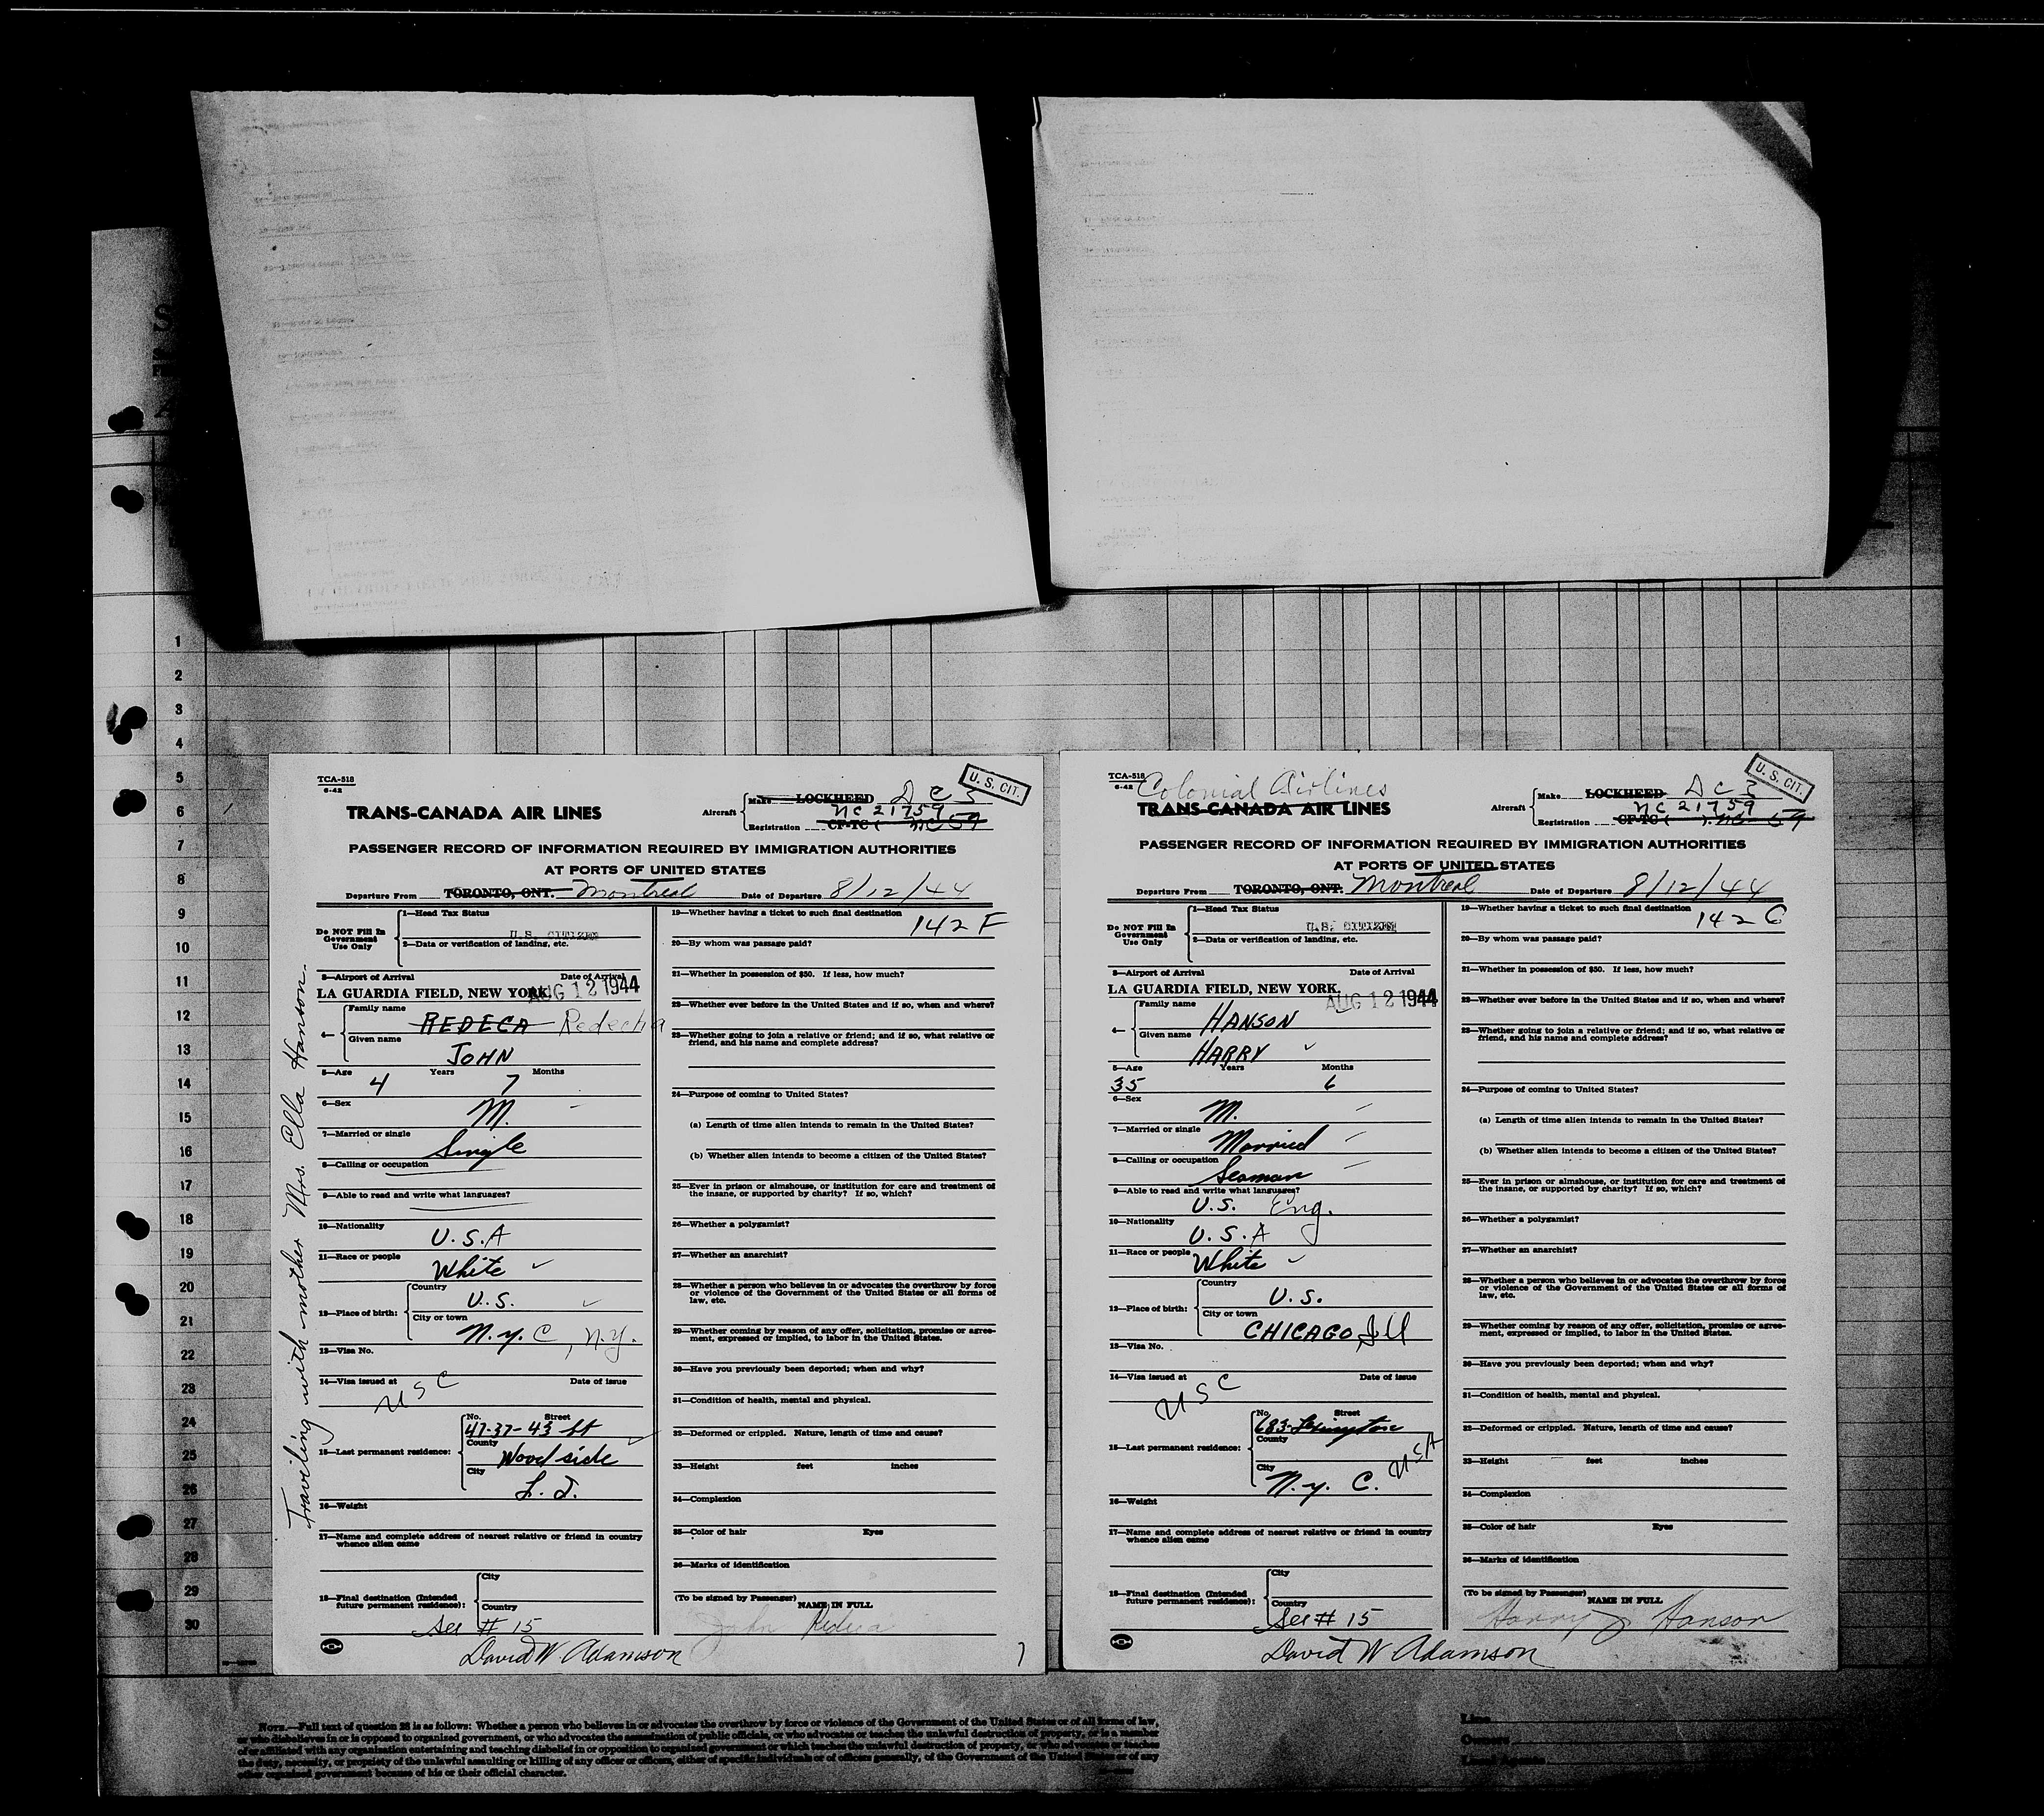 1
2
3
4
5
6
7
8
9
10
11
12
13
14
15
16
17
18
19
20
21
22
23
24
25
26
27
28
29
30
TCA-518
6-42
U. S. CIT.
TRANS-CANADA AIR LINES
Aircraft
Make LOCKHEED DC3
NC 21759
Registration CF-TC ( NC 59
PASSENGER RECORD OF INFORMATION REQUIRED BY IMMIGRATION AUTHORITIES
AT PORTS OF UNITED STATES
Departure From TORONTO, ONT. Montreal Date of Departure 8/12/44
Do NOT Fill In Government Use Only
1—Head Tax Status
U.S. CITIZEN
2—Data or verification of landing, etc.
3—Airport of Arrival Date of Arrival
LA GUARDIA FIELD, NEW YORK. AUG 12 1944
4—
Family name
REDECA Redecha
Given name
JOHN
5—Age Years Months
4 7
6—Sex
M.
7—Married or single
Single
8—Calling or occupation
9—Able to read and write what languages?
10—Nationality
U.S.A
11—Race or people
White
12—Place of birth:
Country
U.S.
City or town
N.Y.C, N.Y.
13—Visa No.
14—Visa issued at Date of issue
USC
15—Last permanent residence:
No. Street
47-37-43 st
County
Woodside
City
L.I.
16—Weight
17—Name and complete address of nearest relative or friend in country
whence alien came
18—Final destination (Intended
future permanent residence):
City
Country
See # 15
David W Adamson
Traveling with mother Mrs. Ella Hanson.
19—Whether having a ticket to such final destination
142 F
20—By whom was passage paid?
21—Whether in possession of $50. If less, how much?
22—Whether ever before in the United States and if so, when and where?
23—Whether going to join a relative or friend; and if so, what relative or
friend, and his name and complete address?
24—Purpose of coming to United States?
(a) Length of time alien intends to remain in the United States?
(b) Whether alien intends to become a citizen of the United States?
25—Ever in prison or almshouse, or institution for care and treatment of
the insane, or supported by charity? If so, which?
26—Whether a polygamist?
27—Whether an anarchist?
28—Whether a person who believes in or advocates the overthrow by force
or violence of the Government of the United States or all forms of
law, etc.
29—Whether coming by reason of any offer, solicitation, promise or agree-
ment, expressed or implied, to labor in the United States.
30—Have you previously been deported; when and why?
31—Condition of health, mental and physical.
32—Deformed or crippled. Nature, length of time and cause?
33—Height feet inches
34—Complexion
35—Color of hair Eyes
36—Marks of identification
(To be signed by Passenger)
NAME IN FULL
John Redeca
TCA-518
6-42
Colonial Airlines
U. S. CIT.
TRANS-CANADA AIR LINES
Aircraft
Make LOCKHEED DC3
NC 21759
Registration CF-TC ( ). NC 59
PASSENGER RECORD OF INFORMATION REQUIRED BY IMMIGRATION AUTHORITIES
AT PORTS OF UNITED STATES
Departure From TORONTO, ONT. Montreal Date of Departure 8/12/44
Do NOT Fill In Government Use Only
1—Head Tax Status
U.S. CITIZEN
2—Data or verification of landing, etc.
3—Airport of Arrival Date of Arrival
LA GUARDIA FIELD, NEW YORK. AUG 12 1944
4—
Family name
HANSON
Given name
HARRY
5—Age Years Months
35 6
6—Sex
M.
7—Married or single
Married
8—Calling or occupation
Seaman
9—Able to read and write what languages?
U.S. Eng.
10—Nationality
U.S.A
11—Race or people
White
12—Place of birth:
Country
U.S.
City or town
CHICAGO, Ill
13—Visa No.
14—Visa issued at Date of issue
USC
15—Last permanent residence:
No. Street
683-Lexington
County
City
N.Y. C. USA
16—Weight
17—Name and complete address of nearest relative or friend in country
whence alien came
18—Final destination (Intended
future permanent residence):
City
Country
See # 15
David W Adamson
19—Whether having a ticket to such final destination
142 C
20—By whom was passage paid?
21—Whether in possession of $50. If less, how much?
22—Whether ever before in the United States and if so, when and where?
23—Whether going to join a relative or friend; and if so, what relative or
friend, and his name and complete address?
24—Purpose of coming to United States?
(a) Length of time alien intends to remain in the United States?
(b) Whether alien intends to become a citizen of the United States?
25—Ever in prison or almshouse, or institution for care and treatment of
the insane, or supported by charity? If so, which?
26—Whether a polygamist?
27—Whether an anarchist?
28—Whether a person who believes in or advocates the overthrow by force
or violence of the Government of the United States or all forms of
law, etc.
29—Whether coming by reason of any offer, solicitation, promise or agree-
ment, expressed or implied, to labor in the United States.
30—Have you previously been deported; when and why?
31—Condition of health, mental and physical.
32—Deformed or crippled. Nature, length of time and cause?
33—Height feet inches
34—Complexion
35—Color of hair Eyes
36—Marks of identification
(To be signed by Passenger)
NAME IN FULL
Harry J Hanson
NOTE.—Full text of question 28 is as follows: Whether a person who believes in or advocates the overthrow by force or violence of the Government of the United States or of all forms of law,
or who disbelieves in or is opposed to organized government, or who advocates the assassination of public officials, or who advocates or teaches the unlawful destruction of property, or is a member
of or affiliated with any organization entertaining and teaching disbelief in or opposition to organized government or which teaches the unlawful destruction of property, or who advocates or teaches
the duty, necessity, or propriety of the unlawful assaulting or killing of any officer or officers, either of specific individuals or of officers generally, of the Government of the United States or of any
other organized government because of his or their official character.
Line
Owners
Local Agents